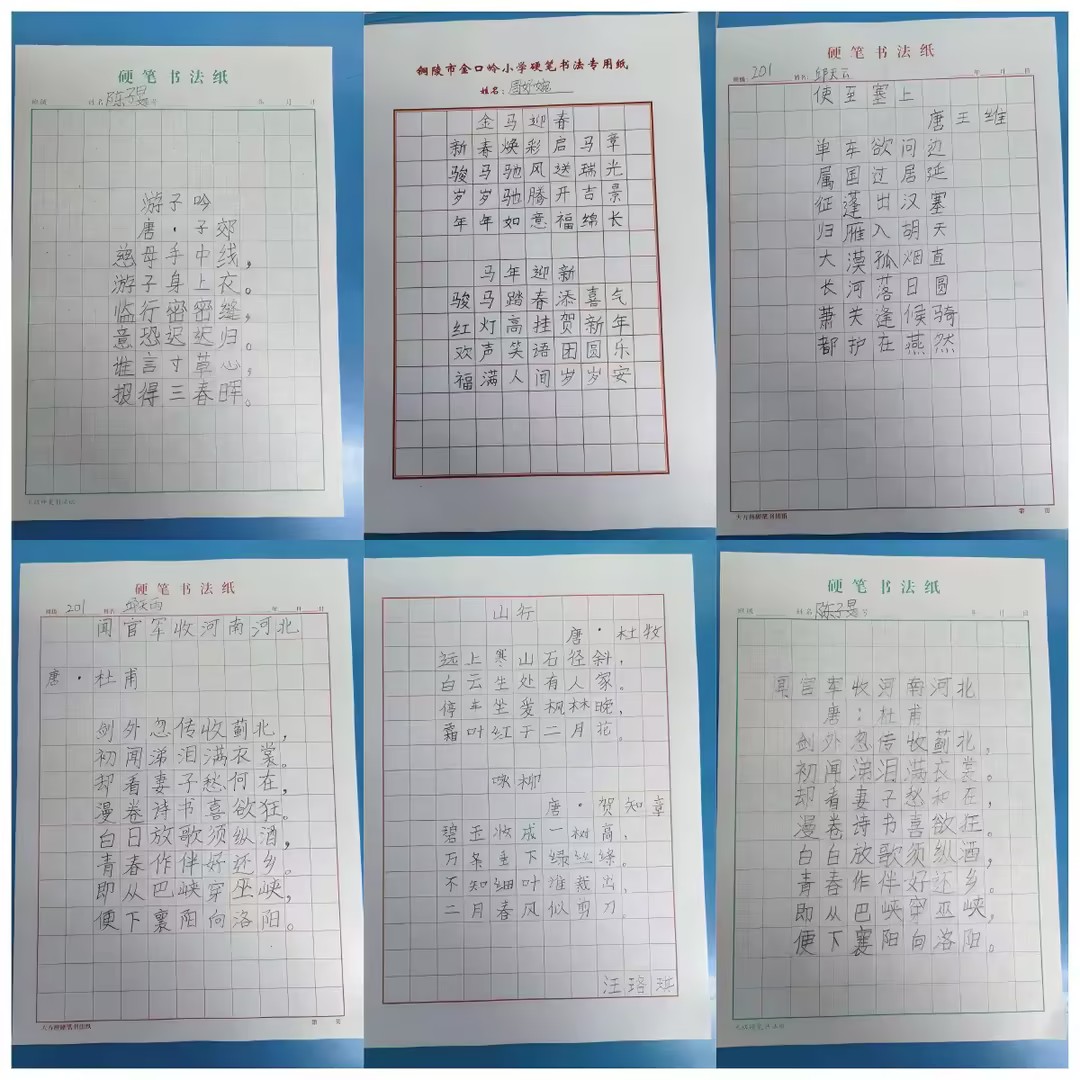 硬笔书法纸
班级 姓名 陈子昙 年 月 日
游子吟
唐·子郊
慈母手中线，
游子身上衣。
临行密密缝，
意恐迟迟归。
谁言寸草心，
报得三春晖。
铜陵市金口岭小学硬笔书法专用纸
姓名：
金马迎春
新春焕彩启马章
骏马驰风送瑞光
岁岁驰腾开吉景
年年如意福绵长
马年迎新
骏马踏春添喜气
红灯高挂贺新年
欢声笑语团圆乐
福满人间岁岁安
硬笔书法纸
班级 201 姓名 邱天云 年 月 日
使至塞上
唐王维
单车欲问边
属国过居延
征蓬出汉塞
归雁入胡天
大漠孤烟直
长河落日圆
萧关逢候骑
都护在燕然
大方格硬笔书法纸
第 页
硬笔书法纸
班级 201 姓名 邱天雨 年 月 日
闻官军收河南河北
唐·杜甫
剑外忽传收蓟北，
初闻涕泪满衣裳。
却看妻子愁何在，
漫卷诗书喜欲狂。
白日放歌须纵酒，
青春作伴好还乡。
即从巴峡穿巫峡，
便下襄阳向洛阳。
大方格硬笔书法纸
第 页
山行
唐·杜牧
远上寒山石径斜，
白云生处有人家。
停车坐爱枫林晚，
霜叶红于二月花。
咏柳
唐·贺知章
碧玉妆成一树高，
万条垂下绿丝绦。
不知细叶谁裁出，
二月春风似剪刀
汪珞琪
硬笔书法纸
班级 姓名 陈子昙 年 月 日
官军收河南河北
唐：杜甫
剑外忽传收蓟北，
初闻涕泪满衣裳。
却看妻子愁和在，
漫卷诗书喜欲狂。
白白放歌须纵酒，
青春作伴好还乡。
即从巴峡穿巫峡，
便下襄阳向洛阳。